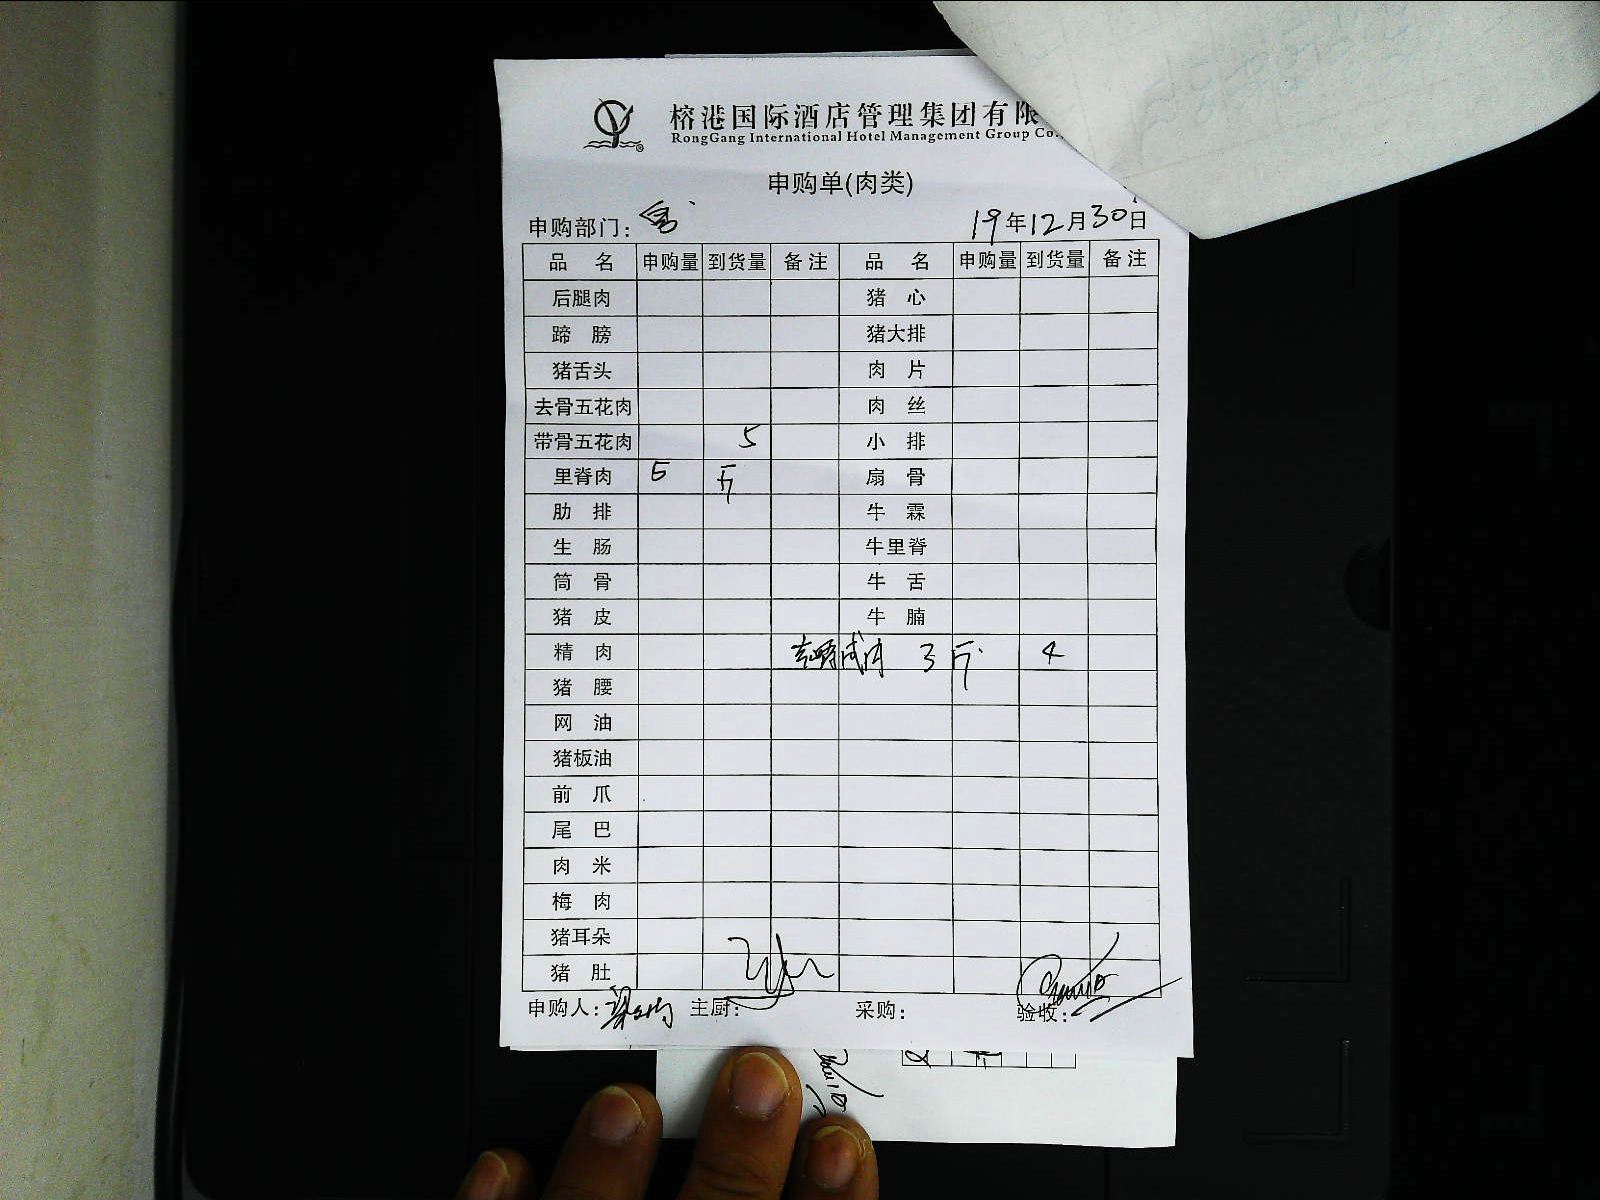 榕港国际酒店管理集团有限
RongGang International Hotel Management Group Co.
申购单(肉类)
申购部门: 19年12月30日
品 名 申购量 到货量 备注 品 名 申购量 到货量 备注
后腿肉 猪 心
蹄 膀 猪大排
猪舌头 肉 片
去骨五花肉 肉 丝
带骨五花肉 5 小 排
里脊肉 5 斤 扇 骨
肋 排 牛 霖
生 肠 牛里脊
筒 骨 牛 舌
猪 皮 牛 腩
精 肉 咸肉 3斤 4
猪 腰
网 油
猪板油
前 爪
尾 巴
肉 米
梅 肉
猪耳朵
猪 肚
申购人: 主厨: 采购: 验收: